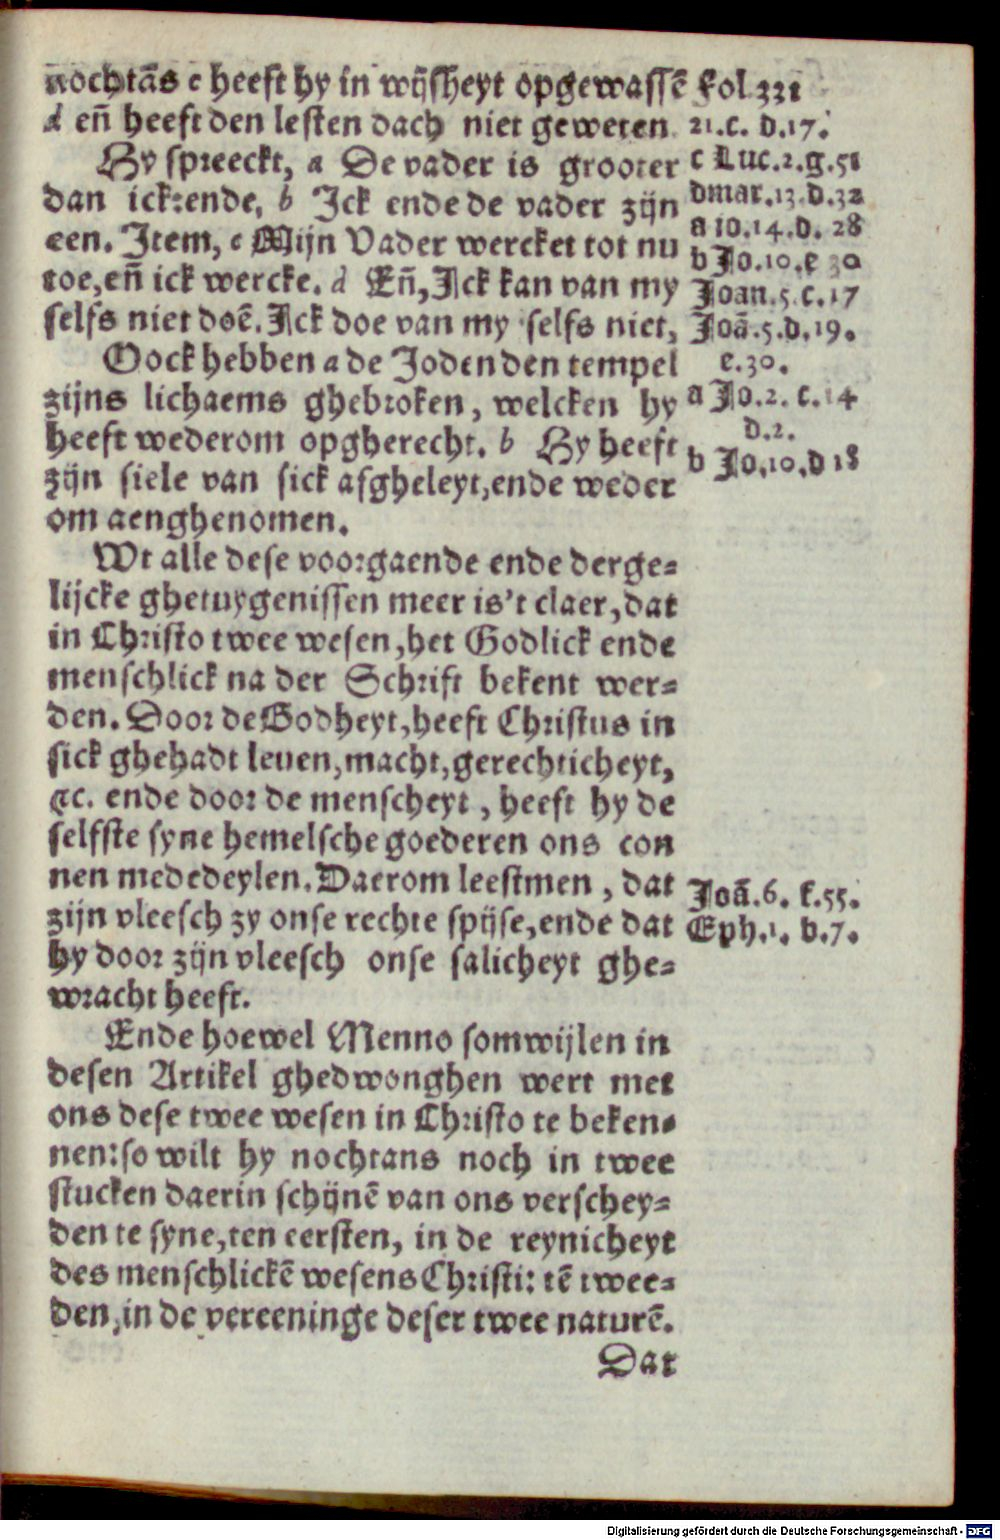 nochtās c heeft hy in wijsheyt opgewassē
d eñ heeft den lesten dach niet geweten
Hy spreeckt, a De vader is grooter
dan ick: ende, b Ick ende de vader zijn
een. Item, c Mijn Vader wercket tot nu
toe, eñ ick wercke. d Eñ, Ick kan van my
selfs niet doē. Ick doe van my selfs niet,
Oock hebben a de Joden den tempel
zijns lichaems ghebroken, welcken hy
heeft wederom opgherecht. b Hy heeft
zijn siele van sick afgheleyt, ende weder
om aenghenomen.
Wt alle dese voorgaende ende derge-
lijcke ghetuygenissen meer is't claer, dat
in Christo twee wesen, het Godlick ende
menschlick na der Schrift bekent wer-
den. Door de Godheyt, heeft Christus in
sick ghehadt leuen, macht, gerechticheyt,
&c. ende door de menscheyt, heeft hy de
selfste syne hemelsche goederen ons con
nen mededeylen. Daerom leestmen, dat
zijn vleesch zy onse rechte spijse, ende dat
hy door zijn vleesch onse salicheyt ghe-
wracht heeft.
Ende hoewel Menno somwijlen in
desen Artikel ghedwonghen wert met
ons dese twee wesen in Christo te beken-
nen: so wilt hy nochtans noch in twee
stucken daerin schijnē van ons verschey-
den te syne, ten eersten, in de reynicheyt
des menschlickē wesens Christi: tē twee-
den, in de vereeninge deser twee naturē.
Dat
Fol 331
21. c. d. 17.
c Luc. 2. g. 51
d mar. 13. d. 32
a 10. 14. d. 28
b Jo. 10. e 30
Joan. 5. c. 17
Joā. 5. d. 19.
e. 30.
a Jo. 2. c. 14
d. 2.
b Jo. 10. d 18
Joā. 6. f. 55.
Eph. 1. b. 7.
Digitalisierung gefördert durch die Deutsche Forschungsgemeinschaft - DFG